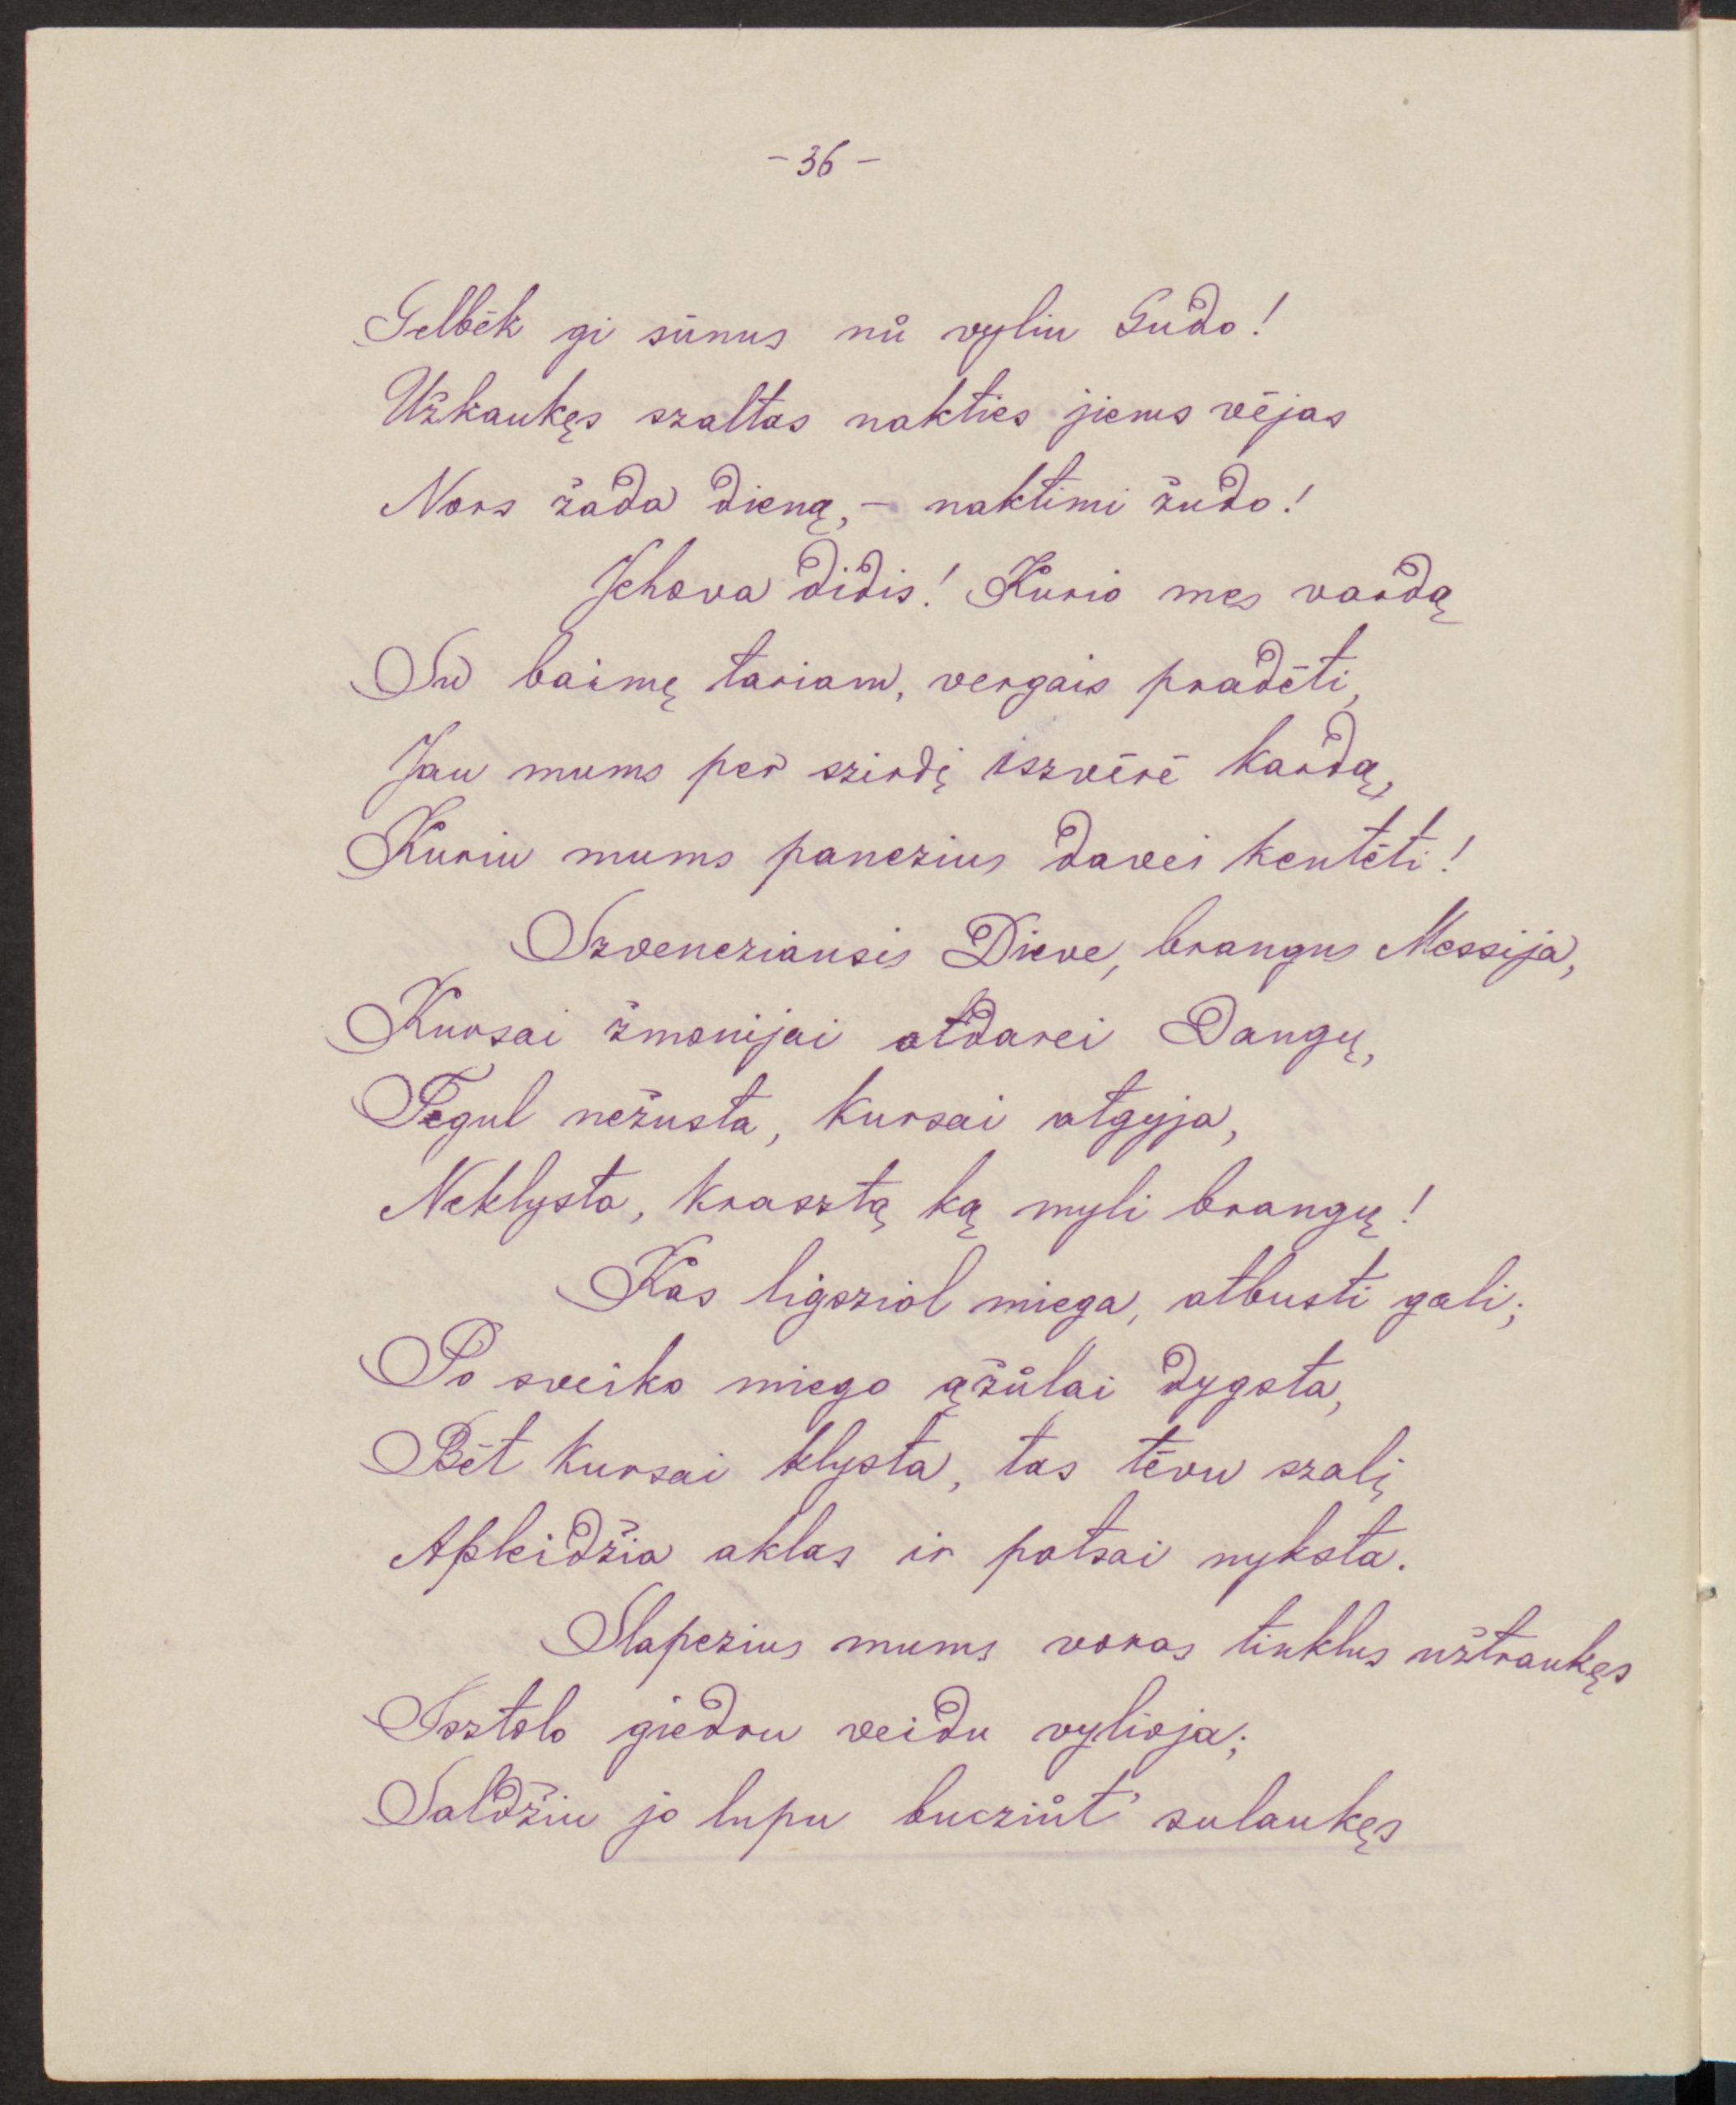 - 36 -
Gelbėk gi sūnus nů vyliu Gudo!
Užkaukęs szaltas nakties jiems vėjas
Nors žada dieną, – naktimi žudo!
Jehova didis! Kurio mes vardą
Su baimę tariam, vergais pradėti,
Jau mums per szirdį iszvėrė kardą,
Kuriu mums panczius davei kentėti!
Szvencziausis Dieve, brangus Messija,
Kursai žmonijai atdarei Dangų,
Tegul nežusta, kursai atgyja,
Neklysta, krasztą ką myli brangų!
Kas ligsziol miega, atbusti gali;
Po sveiko miego ąžůlai dygsta,
Bėt kursai klysta, tas tėvu szalį
Apleidžia aklas ir patsai nyksta.
Slapczius mums voras tinklus užtraukęs
Isztolo giedru veidu vylioja;
Saldžiu jo lupu bucziůt' sulaukęs